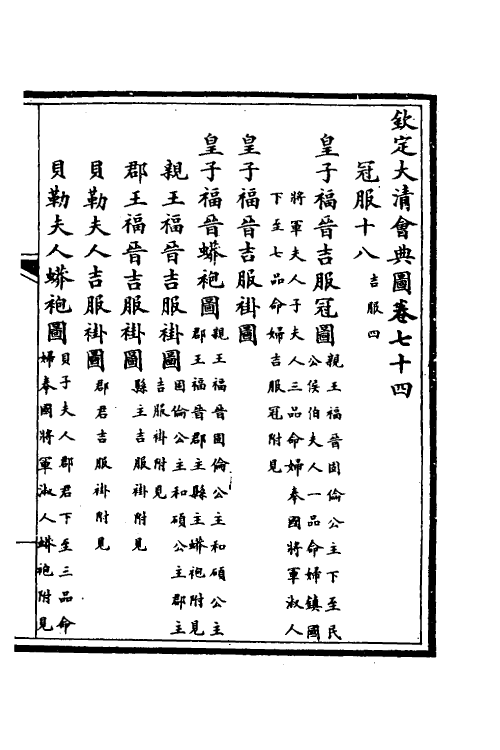 欽定大清會典圖卷七十四
冠服十八 吉服四
皇子福晉吉服冠圖 親王福晉固倫公主下至民
公侯伯夫人一品命婦鎮國
將軍夫人子夫人三品命婦奉國將軍淑人
下至七品命婦吉服冠附見
皇子福晉吉服褂圖
皇子福晉蟒袍圖 親王福晉固倫公主和碩公主
郡王福晉郡主縣主蟒袍附見
親王福晉吉服褂圖 固倫公主和碩公主郡主
吉服褂附見
郡王福晉吉服褂圖 縣主吉服褂附見
貝勒夫人吉服褂圖 郡君吉服褂附見
貝勒夫人蟒袍圖 貝子夫人郡君下至三品命
婦奉國將軍淑人蟒袍附見